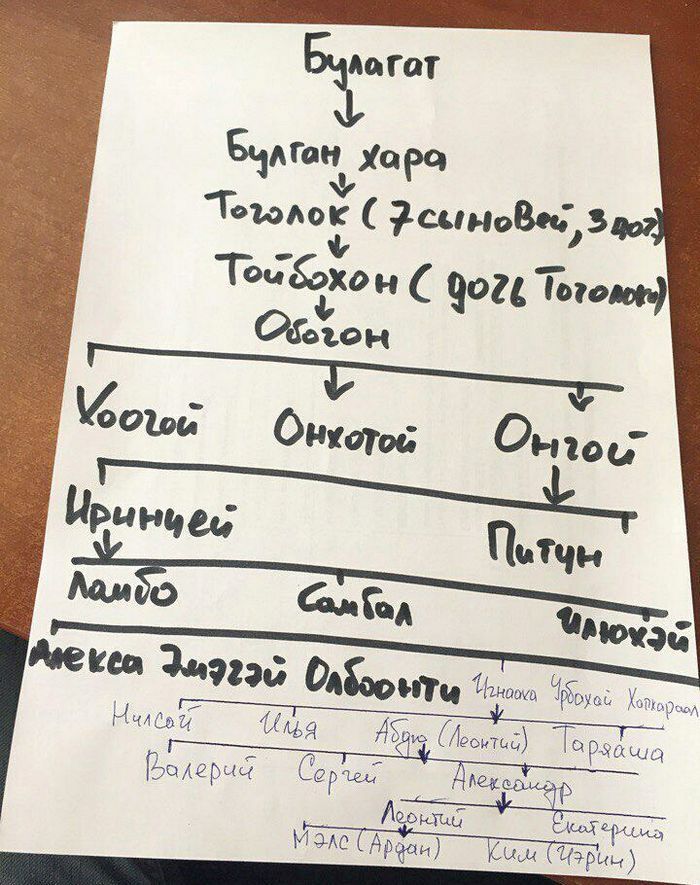 Булагат
Булган хара
Тоголок (7 сыновей, 3 доч.)
Тойбохон (дочь Тоголоки)
Обогон
Хоогой Онхотой Онгой
Иринцей Питун
Ламбо Самбал Илюхэй
Алекса Эмэгэй Олбоонти Игнааха Урбахай Хапхараал
Нилсай Илья Абдуо (Леонтий) Таряаша
Валерий Сергей Александр
Леонтий Екатерина
Мэлс (Ардан) Ким (Цэрин)